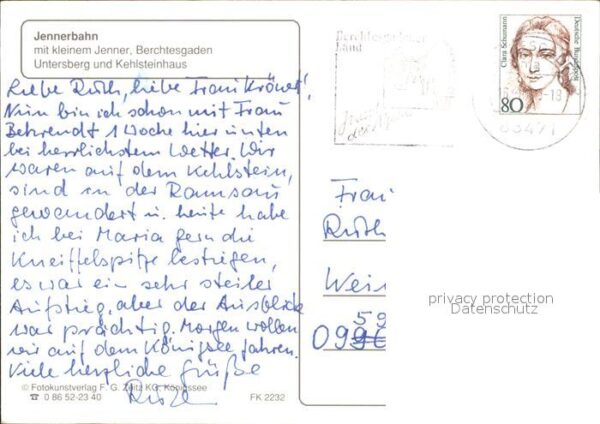 Jennerbahn
mit kleinem Jenner, Berchtesgaden
Untersberg und Kehlsteinhaus
Liebe Ruth, liebe Frau Krönert!
Nun bin ich schon mit Frau
Behrendt 1 Woche hier unten
bei herrlichstem Wetter. Wir
waren auf dem Kehlstein,
sind in der Ramsau
gewandert u. heute habe
ich bei Maria gern die
Kneiffelspitze bestiegen,
es war ein sehr steiler
Aufstieg, aber der Ausblick
war prächtig. Morgen wollen
wir auf dem Königsee fahren.
Viele herzliche Grüße
© Fotokunstverlag F. G. Zeitz KG, Königssee
☎ 0 86 52-23 40
FK 2232
Berchtesgadener
Land
Clara Schumann
Deutsche Bundespost
80
83471
Frau
Ruth
Wein
59
099
privacy protection
Datenschutz